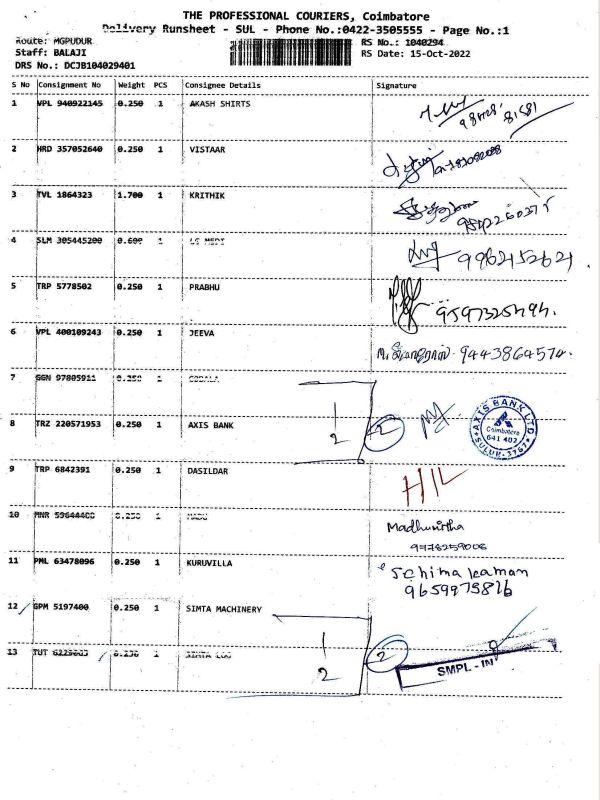 THE PROFESSIONAL COURIERS, Coimbatore
Delivery Runsheet - SUL - Phone No.:0422-3505555 - Page No.:1
Route: MGPUDUR
RS No.: 1040294
Staff: BALAJI
RS Date: 15-Oct-2022
DRS No.: DCJB104029401
S No Consignment No Weight PCS Consignee Details Signature
1 VPL 940922145 0.250 1 AKASH SHIRTS
2 HRD 357052640 0.250 1 VISTAAR
3 TVL 1864323 1.700 1 KRITHIK
4 SLM 305445200 0.600 1 LG MEDI 9962152621
5 TRP 5778502 0.250 1 PRABHU 9597325494.
6 VPL 400109243 0.250 1 JEEVA 9443864574.
7 GGN 97805911 0.250 1
1
2
8 TRZ 220571953 0.250 1 AXIS BANK 2
AXIS BANK LTD.
Coimbatore
641 402
SULUR-3767
9 TRP 6842391 0.250 1 DASILDAR H/L
10 MNR 59644400 0.250 1 MADU Madhumitha
11 PML 63478096 0.250 1 KURUVILLA
9659975816
12 GPM 5197400 0.250 1 SIMTA MACHINERY
1
2
13 TUT 0.250 1 SIMTA LOG 2
SMPL - IN